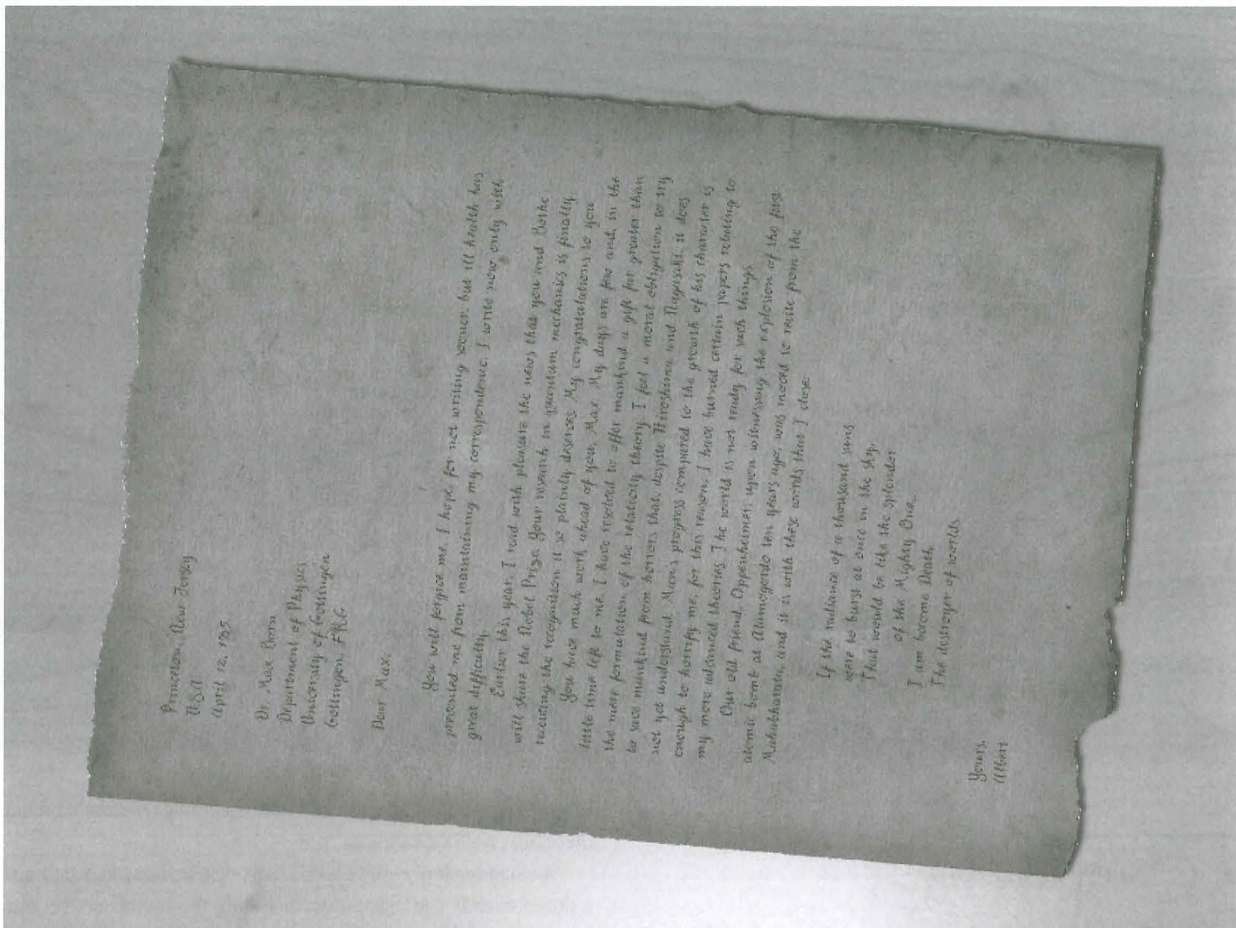 Princeton, New Jersey
USA
April 12, 1955
Dr. Max Born
Department of Physics
University of Gottingen
Gottingen, FRG
Dear Max,
You will forgive me, I hope, for not writing sooner, but ill health has
prevented me from maintaining my correspondence. I write now only with
great difficulty.
Earlier this year, I read with pleasure the news that you and Bothe
will share the Nobel Prize. Your research in quantum mechanics is finally
receiving the recognition it so plainly deserves. My congratulations to you
You have much work ahead of you, Max. My days are few and, in the
little time left to me, I have resolved to offer mankind a gift far greater than
the mere formulation of the relativity theory. I feel a moral obligation to try
to save mankind from horrors that, despite Hiroshima and Nagasaki, it does
not yet understand. Man's progress compared to the growth of his character is
enough to horrify me; for this reason, I have burned certain papers relating to
my more advanced theories. The world is not ready for such things.
Our old friend, Oppenheimer, upon witnessing the explosion of the first
atomic bomb at Alamogordo ten years ago, was moved to recite from the
Mahabharata, and it is with these words that I close.
If the radiance of a thousand suns
were to burst at once in the sky,
That would be like the splendor
of the Mighty One...
I am become Death,
The destroyer of worlds.
Yours,
Albert